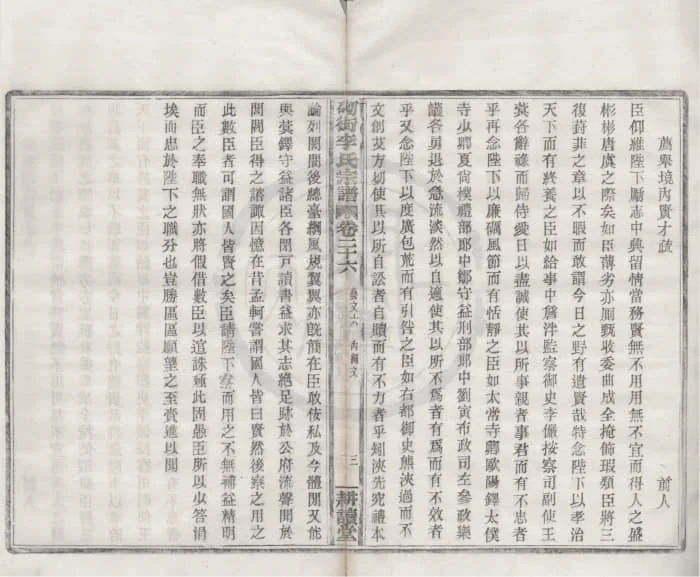 薦舉境內賢才疏　前人
臣仰維陛下勵志中興留情當務賢無不用用無不宜而得人之盛
彬彬唐虞之際矣如臣薄劣亦厠甄收委曲成全掩飾瑕纇臣將三
復葑菲之章以不暇而敢謂今日之野有遺賢哉特念陛下以孝治
天下而有終養之臣如給事中詹泮監察御史李儼按察司副使王
蓂各辭祿而歸侍愛日以盡誠使其以所事親者事君而有不忠者
乎再念陛下以廉礪風節而有恬靜之臣如太常寺卿歐陽鐸太僕
寺少卿夏尚樸禮部郎中鄒守益刑部郎中劉寅布政司左參政樂
護各勇退於急流淡然以自適使其以所不為者有為而有不效者
乎又念陛下以度廣包荒而有引咎之臣如右都御史熊浹過而不
文創艾方切使其以所自訟者自贖而有不力者乎矧浹先究禮本
砌街李氏宗譜
卷二十六
藝文六　內編文
三
耕讀堂
論列閹閽後總臺綱風規翼翼亦旣簡在臣敢佞私及今體閒又能
與蓂鐸守益諸臣各閉戸讀書益求其志絕足跡於公府流聲聞於
閭閻臣得之諮諏因憶在昔孟軻嘗謂國人皆曰賢然後察之用之
此數臣者可謂國人皆賢之矣臣請陛下察而用之不無補益精明
而臣之奉職無狀亦將假借數臣以逭誅殛此固愚臣所以少答涓
埃而忠於陛下之職分也豈勝區區願望之至賫進以聞